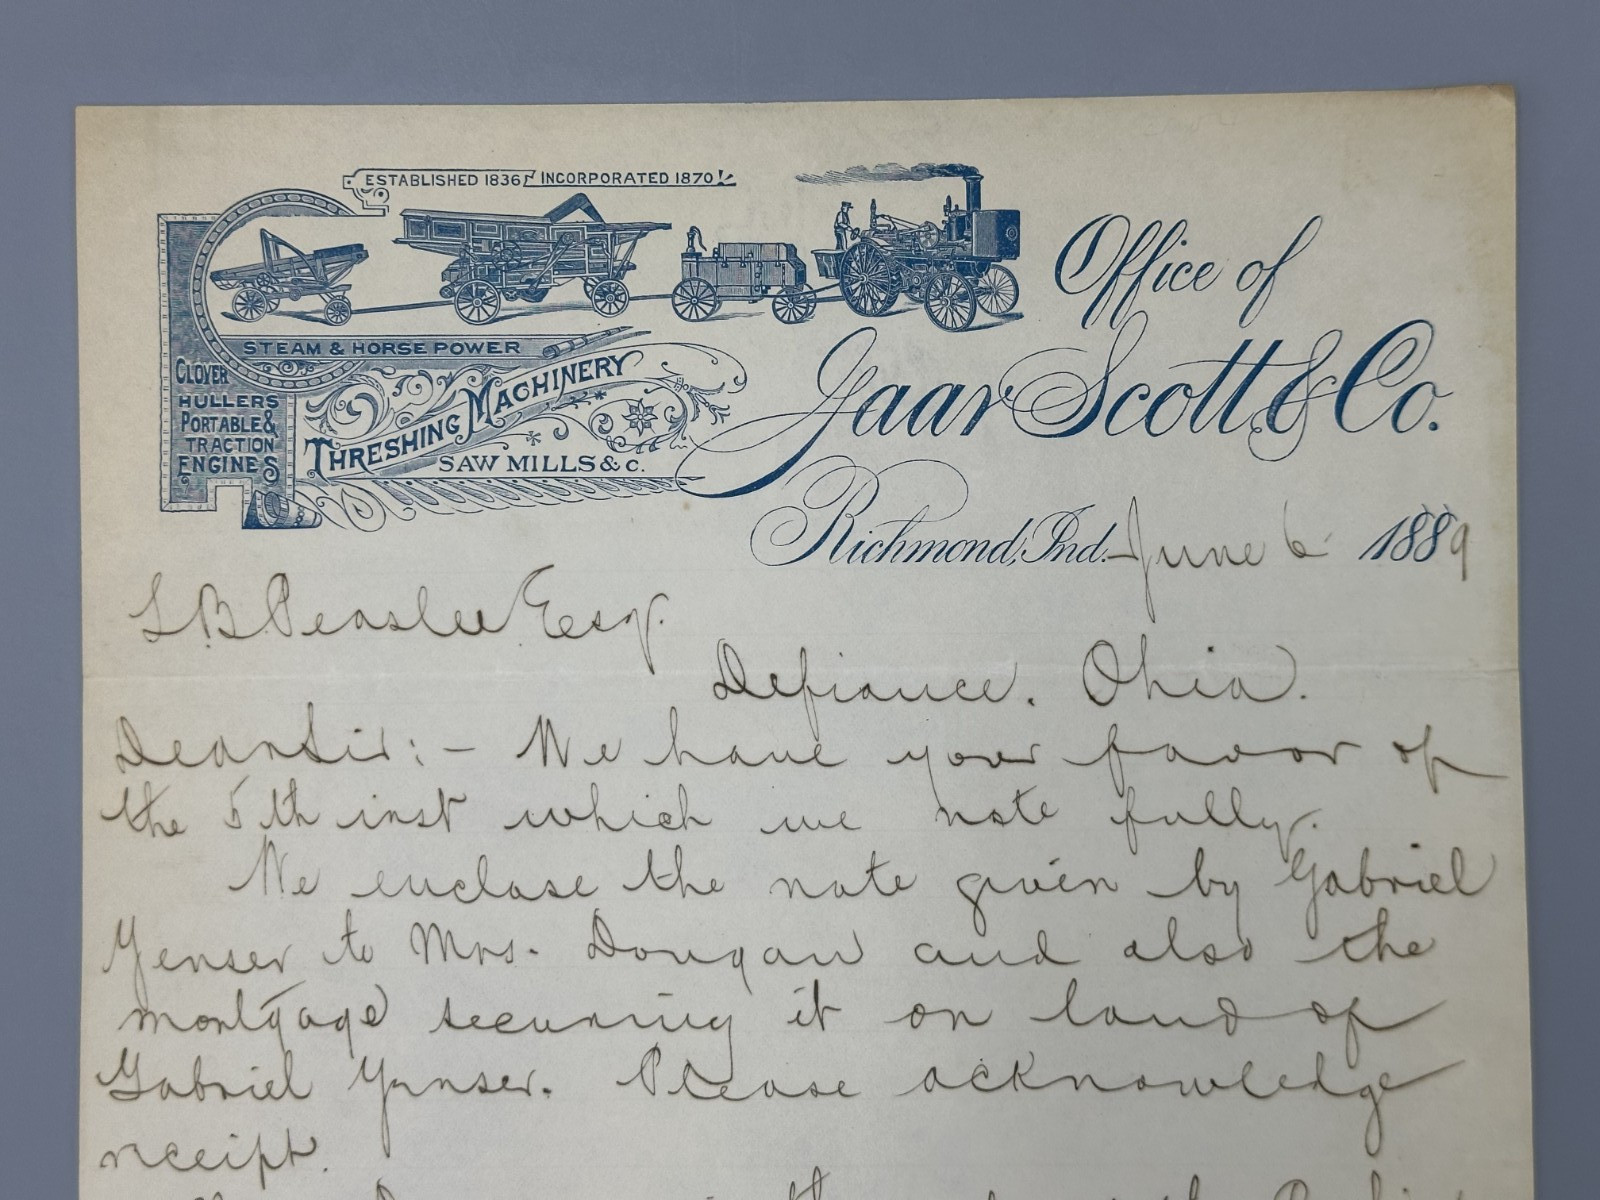 ESTABLISHED 1836 INCORPORATED 1870
STEAM & HORSE POWER
CLOVER
HULLERS
PORTABLE &
TRACTION
ENGINES
THRESHING MACHINERY
SAW MILLS & C.
Office of
Gaar Scott & Co.
Richmond, Ind. June 6 1889
S B. Peaslee Esqr.
Defiance. Ohio.
Dear Sir:- We have your favor of
the 5th inst which we note fully.
We enclose the note given by Gabriel
Yenser to Mrs. Dougan and also the
mortgage securing it on land of
Gabriel Yenser. Please acknowledge
receipt.